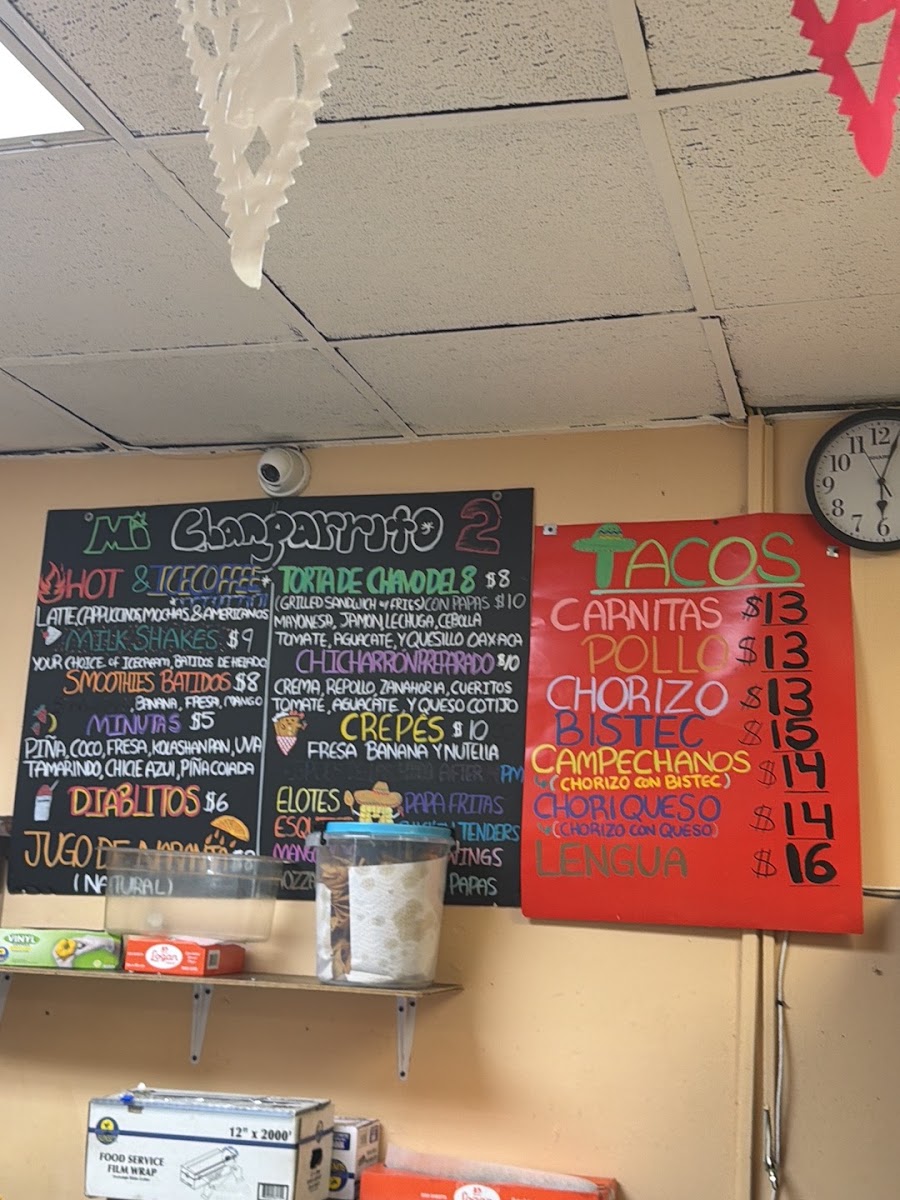 Mi Changarrito 2
HOT & ICE COFFEE
LATTE, CAPPUCCINOS, MOCHAS & AMERICANOS
MILK SHAKES $9
YOUR CHOICE OF ICECREAM, BATIDOS DE HELADO
SMOOTHIES BATIDOS $8
BANANA, FRESA, MANGO
MINUTAS $5
PIÑA, COCO, FRESA, KOLASHANPAN, UVA
TAMARINDO, CHICLE AZUL, PIÑA COLADA
DIABLITOS $6
JUGO DE
(NATURAL)
TORTA DE CHAVO DEL 8 $8
(GRILLED SANDWICH W/ FRIES) CON PAPAS $10
MAYONESA, JAMON, LECHUGA, CEBOLLA
TOMATE, AGUACATE, Y QUESILLO OAXACA
CHICHARRÓN PREPARADO $10
CREMA, REPOLLO, ZANAHORIA, CUERITOS
TOMATE, AGUACATE, Y QUESO COTIJO
CREPES $10
FRESA BANANA Y NUTELLA
AFTER PM
ELOTES
PAPA FRITAS
TENDERS
WINGS
PAPAS
TACOS
CARNITAS $13
POLLO $13
CHORIZO $13
BISTEC $15
CAMPECHANOS $14
(CHORIZO CON BISTEC)
CHORIQUESO $14
(CHORIZO CON QUESO)
LENGUA $16
11 12
10
9
8
7 6
VINYL
Logan
12" X 2000'
FOOD SERVICE
FILM WRAP
Logan